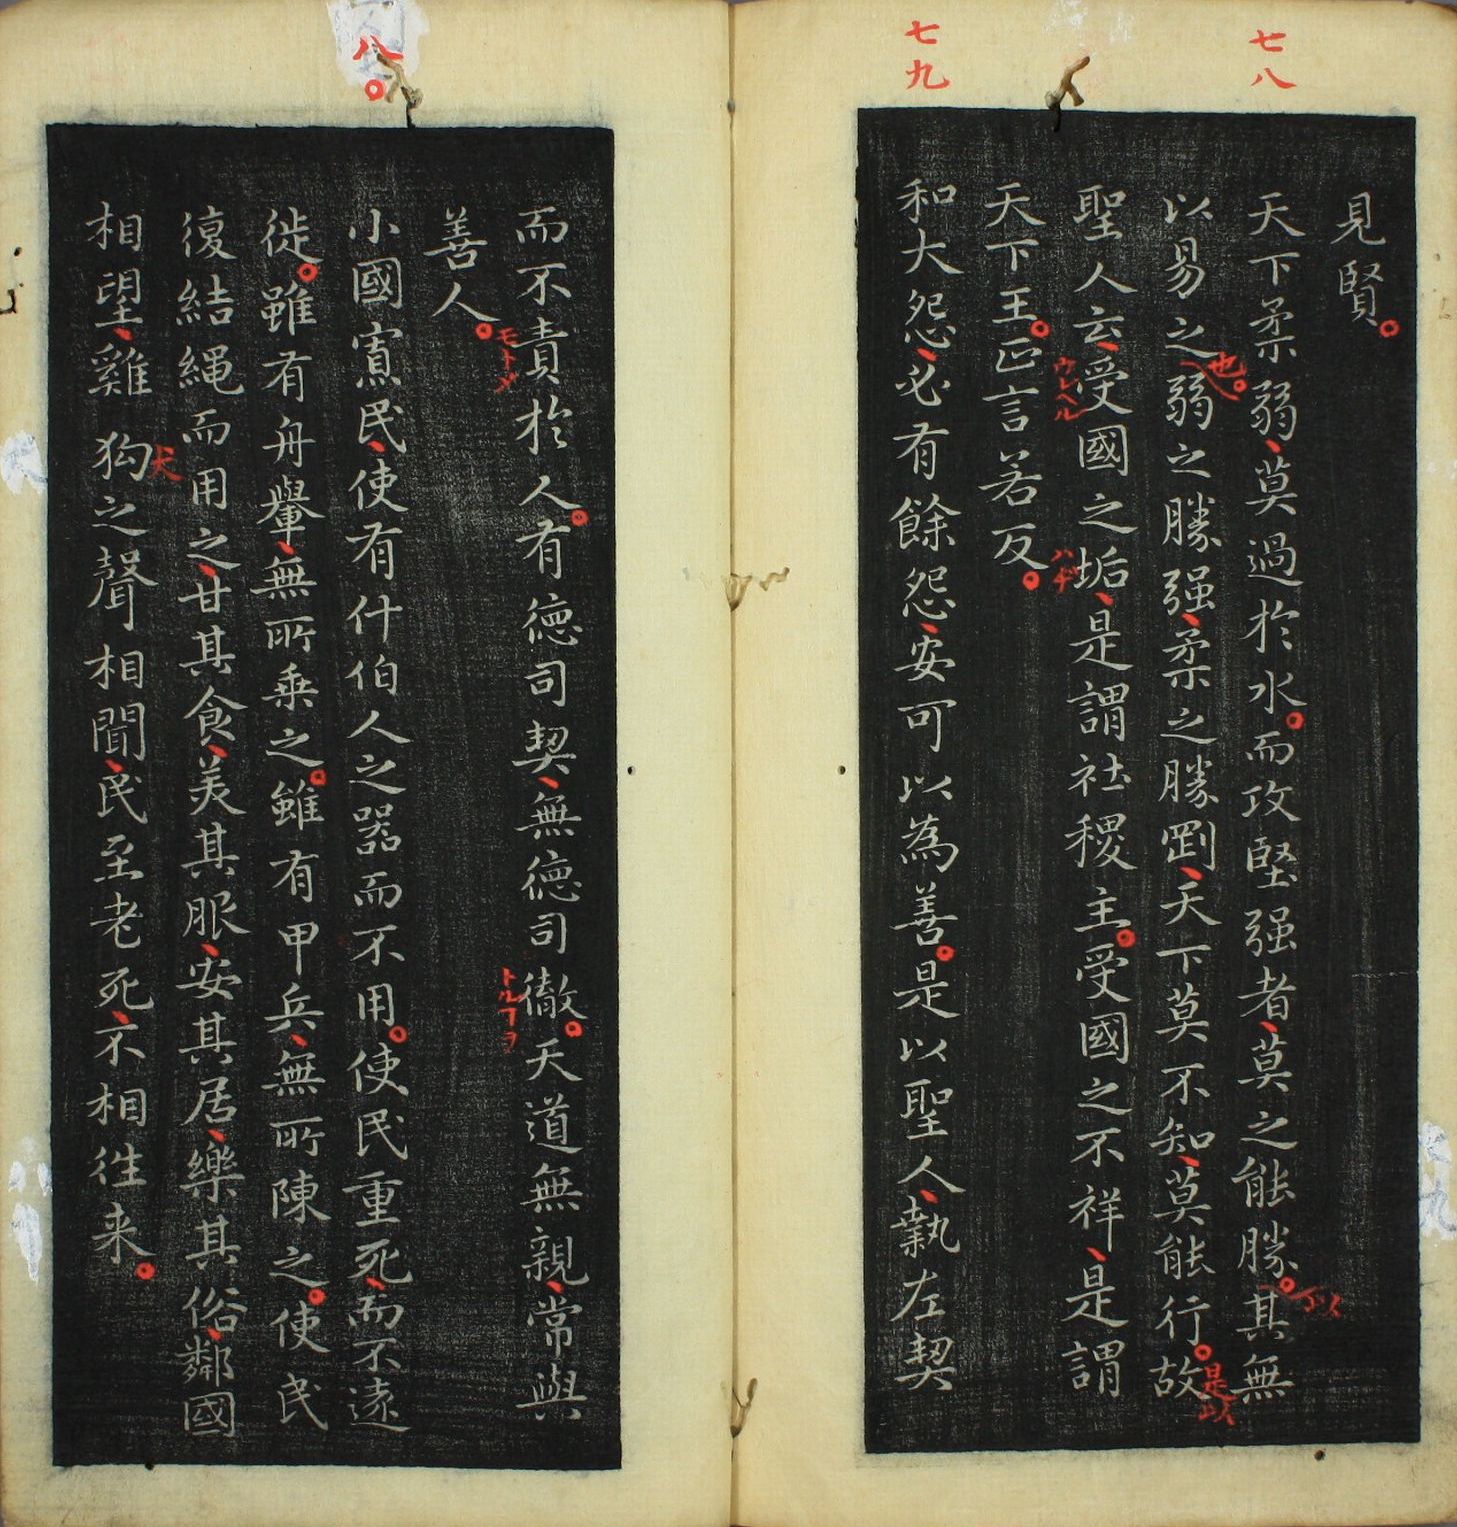 七八
七九
見賢。
天下柔弱、莫過於水。而攻堅强者、莫之能勝。其無
以
以易之弱之勝强、柔之勝剛、天下莫不知、莫能行。故
也。
是以
聖人云、受國之垢、是謂社稷主。受國之不祥、是謂
ウレヘル
ハヂ
天下王。正言若反。
和大怨、必有餘怨、安可以為善。是以聖人、執左契
八〇
而不責於人。有德司契、無德司徹。天道無親、常與
モトメ
トルコヲ
善人。
小國寡民、使有什伯人之器而不用。使民重死、而不遠
徙。雖有舟轝、無所乘之。雖有甲兵、無所陳之。使民
復結繩而用之、甘其食、美其服、安其居、樂其俗、鄰國
相望、雞狗之聲相聞、民至老死、不相往来。
犬